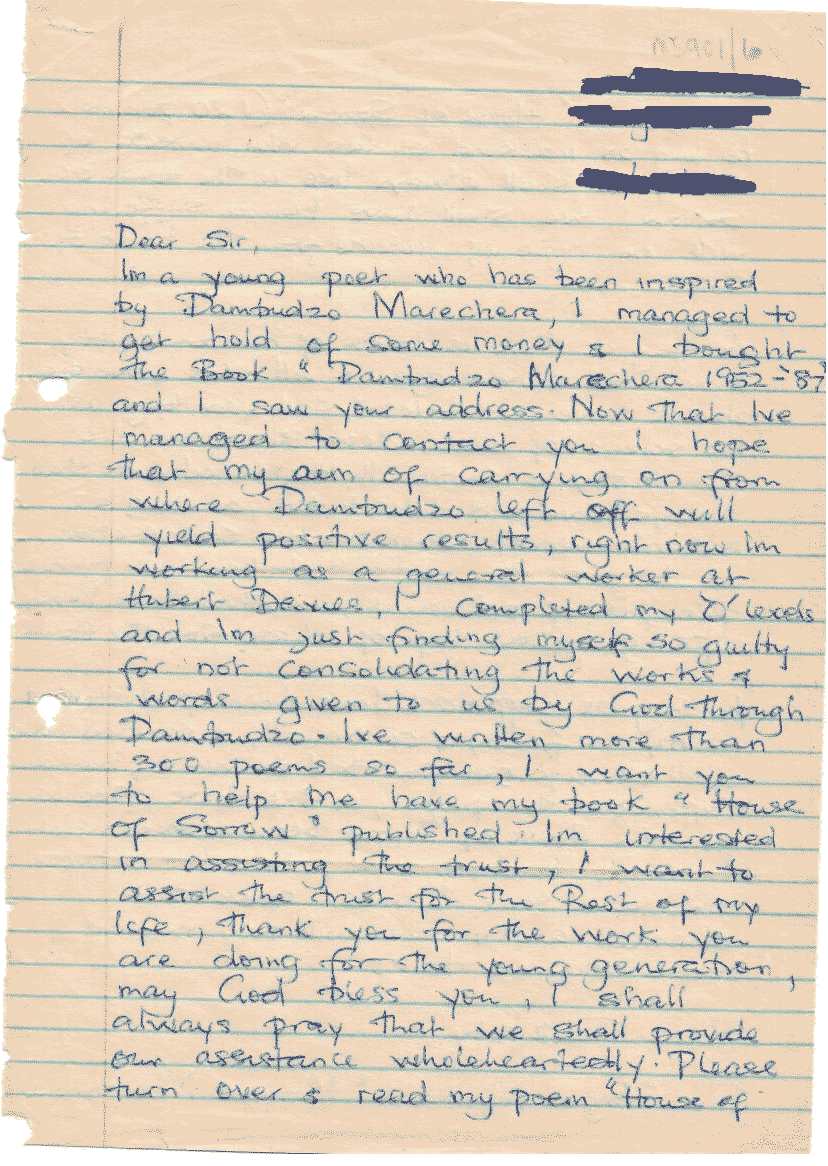 Dear Sir,
Im a young poet who has been inspired
by Dambudzo Marechera, I managed to
get hold of some money & I bought
the Book "Dambudzo Marechera 1952-'87"
and I saw your address. Now that Ive
managed to contact you I hope
that my aim of carrying on from
where Dambudzo left off will
yield positive results, right now Im
working as a general worker at
Hubert Davies, I completed my 'O' levels
and Im just finding myself so guilty
for not consolidating the works &
words given to us by God through
Dambudzo. Ive written more than
300 poems so far, I want you
to help me have my book "House
of Sorrow" published. Im interested
in assisting the trust, I want to
assist the trust for the Rest of my
life, thank you for the work you
are doing for the young generation,
may God bless you, I shall
always pray that we shall provide
our assistance wholeheartedly. Please
turn over & read my poem "House of